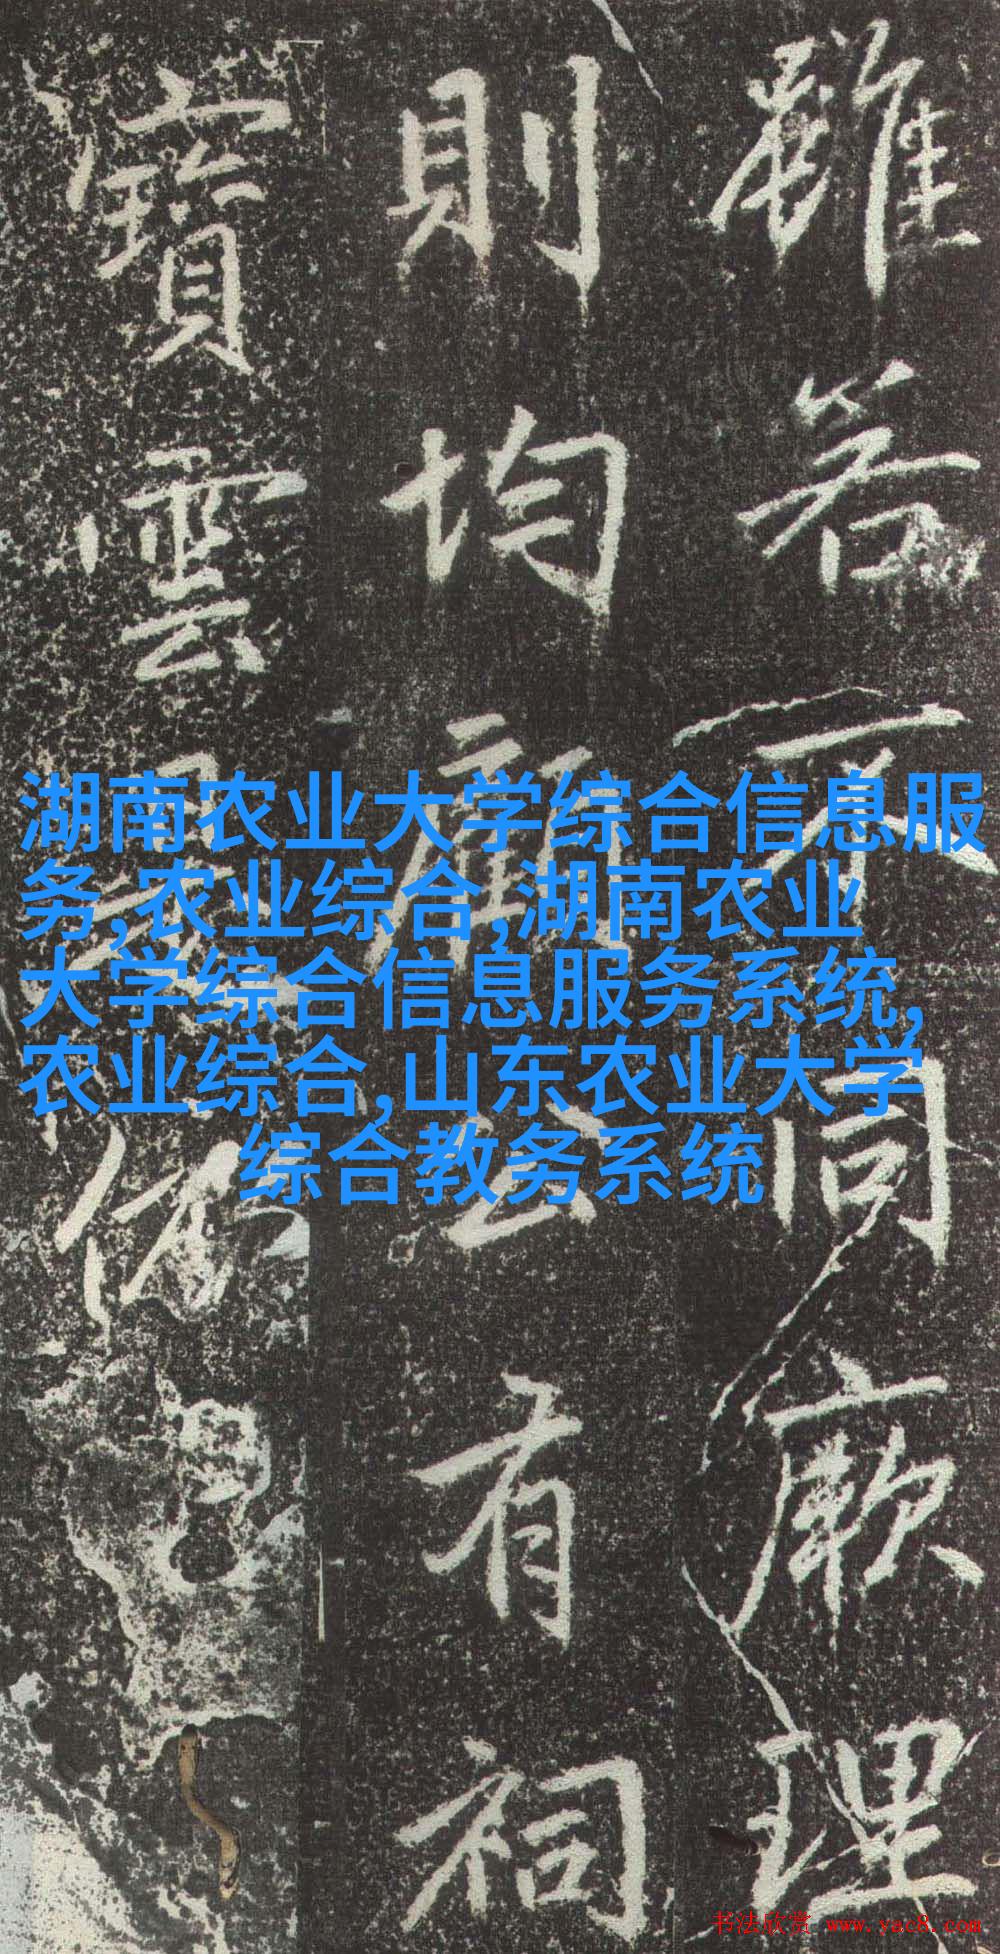 雖若不同厥理
則均顧公有祠
寶雲
湖南农业大学综合信息服
务,农业综合,湖南农业
大学综合信息服务系统,
农业综合,山东农业大学
综合教务系统
书法欣赏 www.yac8.com